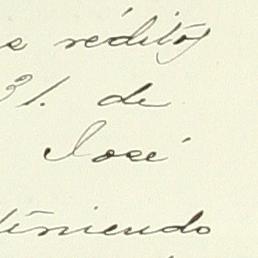 s réditos
31. de
José
tiniendo